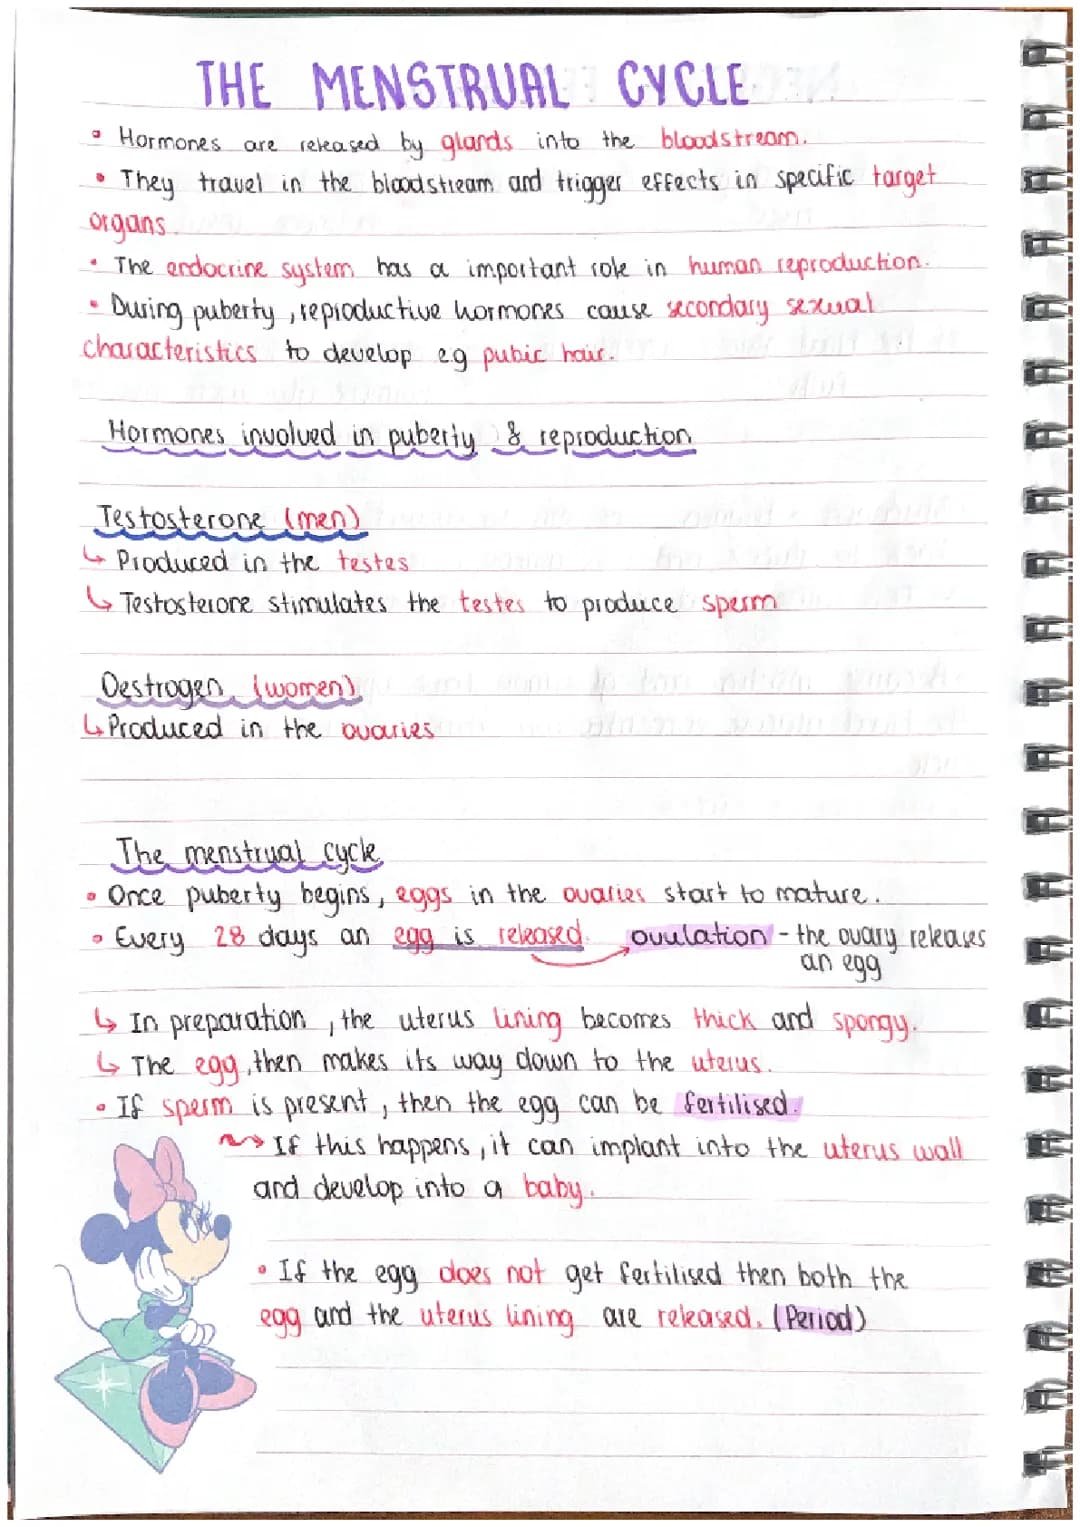 THE MENSTRUAL CYCLE
• Hormones are released by glands into the bloodstream.
• They travel in the bloodstream and trigger effects in specific target
organs.
• The endocrine system has a important role in human reproduction.
• During puberty, reproductive hormones cause secondary sexual
characteristics to develop eg pubic hair.
Hormones involved in puberty & reproduction
Testosterone (men)
↳ Produced in the testes
↳ Testosterone stimulates the testes to produce sperm
Oestrogen (women)
↳ Produced in the ovaries
The menstrual cycle
• Once puberty begins, eggs in the ovaries start to mature.
• Every 28 days an egg is released. ovulation - the ovary releases
an egg
↳ In preparation, the uterus lining becomes thick and spongy.
↳ The egg, then makes its way down to the uterus.
• If sperm is present, then the egg can be fertilised.
If this happens, it can implant into the uterus wall
and develop into a baby.
• If the egg does not get fertilised then both the
egg and the uterus lining are released. (Period)